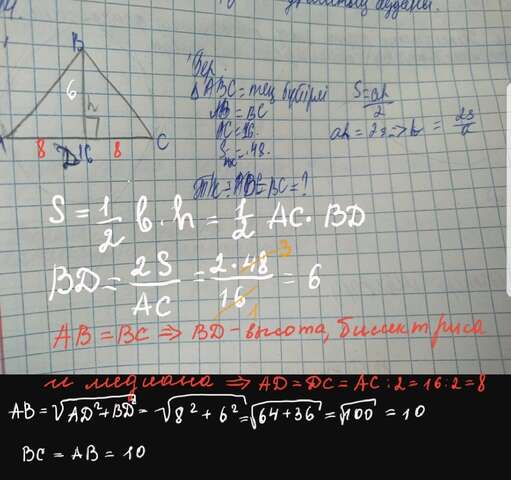 B
6
h
A
C
8
D
16
8
Бер.
Δ ABC = тең бүйірлі
AB = BC
AC = 16
S = 48.
S = ah/2
ah = 2s => h = 2s/a
Т/к = AB = BC = ?
S = 1/2 b · h = 1/2 AC · BD
BD = 2S/AC = 2·48/16 = 6
3
1
AB = BC ⇒ BD - высота, биссектриса
и медиана ⇒ AD = DC = AC : 2 = 16 : 2 = 8
AB = √AD² + BD² = √8² + 6² = √64 + 36 = √100 = 10
BC = AB = 10